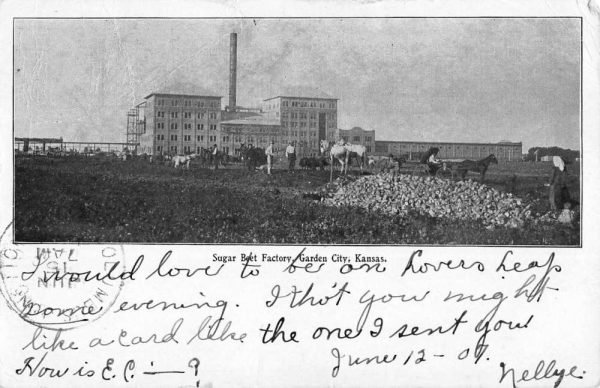 Sugar Beet Factory, Garden City, Kansas.
I would love to be on Lovers Leap
some evening. I tho't you might
like a card like the one I sent you
How is E.C. — ? June 12 - 07.
Nellye.
7 AM
JUN